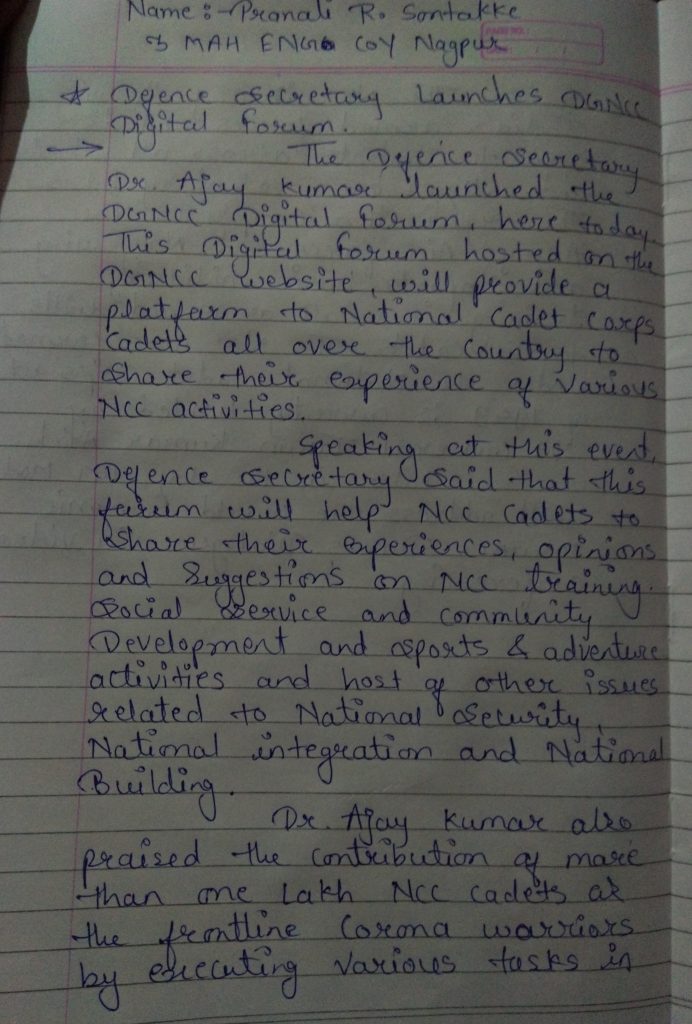 Name :- Pranali R. Sontakke
3 MAH ENGG COY Nagpur
* Defence Secretary Launches DGNCC
Digital forum.
→ The Defence Secretary
Dr. Ajay Kumar launched the
DGNCC Digital forum, here today.
This Digital forum hosted on the
DGNCC website, will provide a
platform to National Cadet Corps
Cadets all over the Country to
Share their experience of various
NCC activities.
Speaking at this event,
Defence Secretary Said that this
forum will help NCC Cadets to
Share their experiences, opinions
and Suggestions on NCC training.
Social Service and community
Development and sports & adventure
activities and host of other issues
related to National Security,
National integration and National
Building.
Dr. Ajay Kumar also
praised the contribution of more
than one lakh NCC cadets as
the frontline Corona warriors
by executing various tasks in